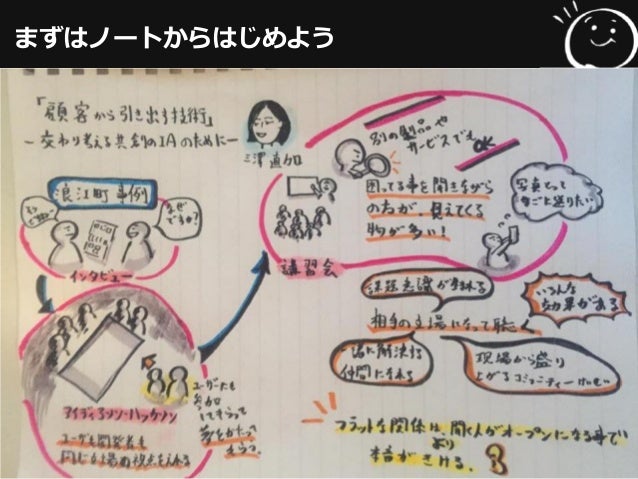 まずはノートからはじめよう
「顧客から引き出す技術」
-交わり考える共創のIAのために-
三澤直加
浪江町事例
なぜ
ですか?
インタビュー
アイディアソン・ハッカソン
ユーザーも開発者も
同じ立場の視点を入れる
ユーザーにも
参加
してもらって
講習会
別の製品や
サービスでも
OK
困ってる事を聞きながら
の方が、見えてくる
物が多い!
写真とって
送りたい
課題意識が生まれる
いろんな
効果がある
相手の立場になって聴く
一緒に解決する
仲間になれる
現場から盛り
上がるコミュニティー
フラットな関係は、聞く人がオープンになる事で
より
本音がきける。